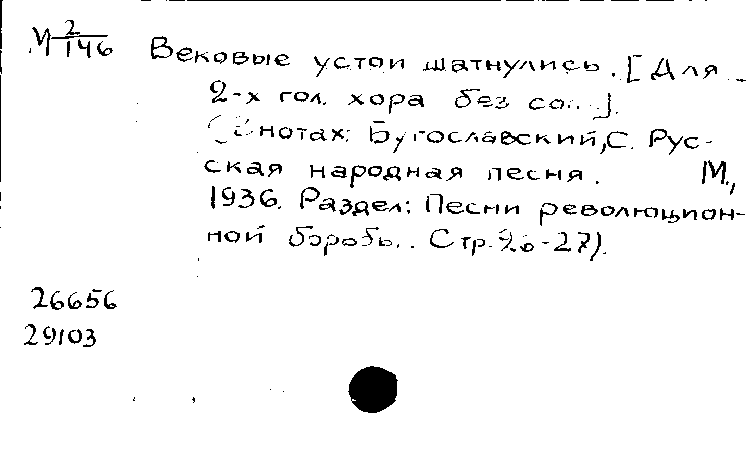 М 2/146
Вековые устои шатнулись. [Для
2-х гол. хора без со...].
(В нотах: Бугославский, С. Рус-
ская народная песня. М.,
1936. Раздел: Песни революцион-
ной борьбы. Стр. 26-27).
26656
29103